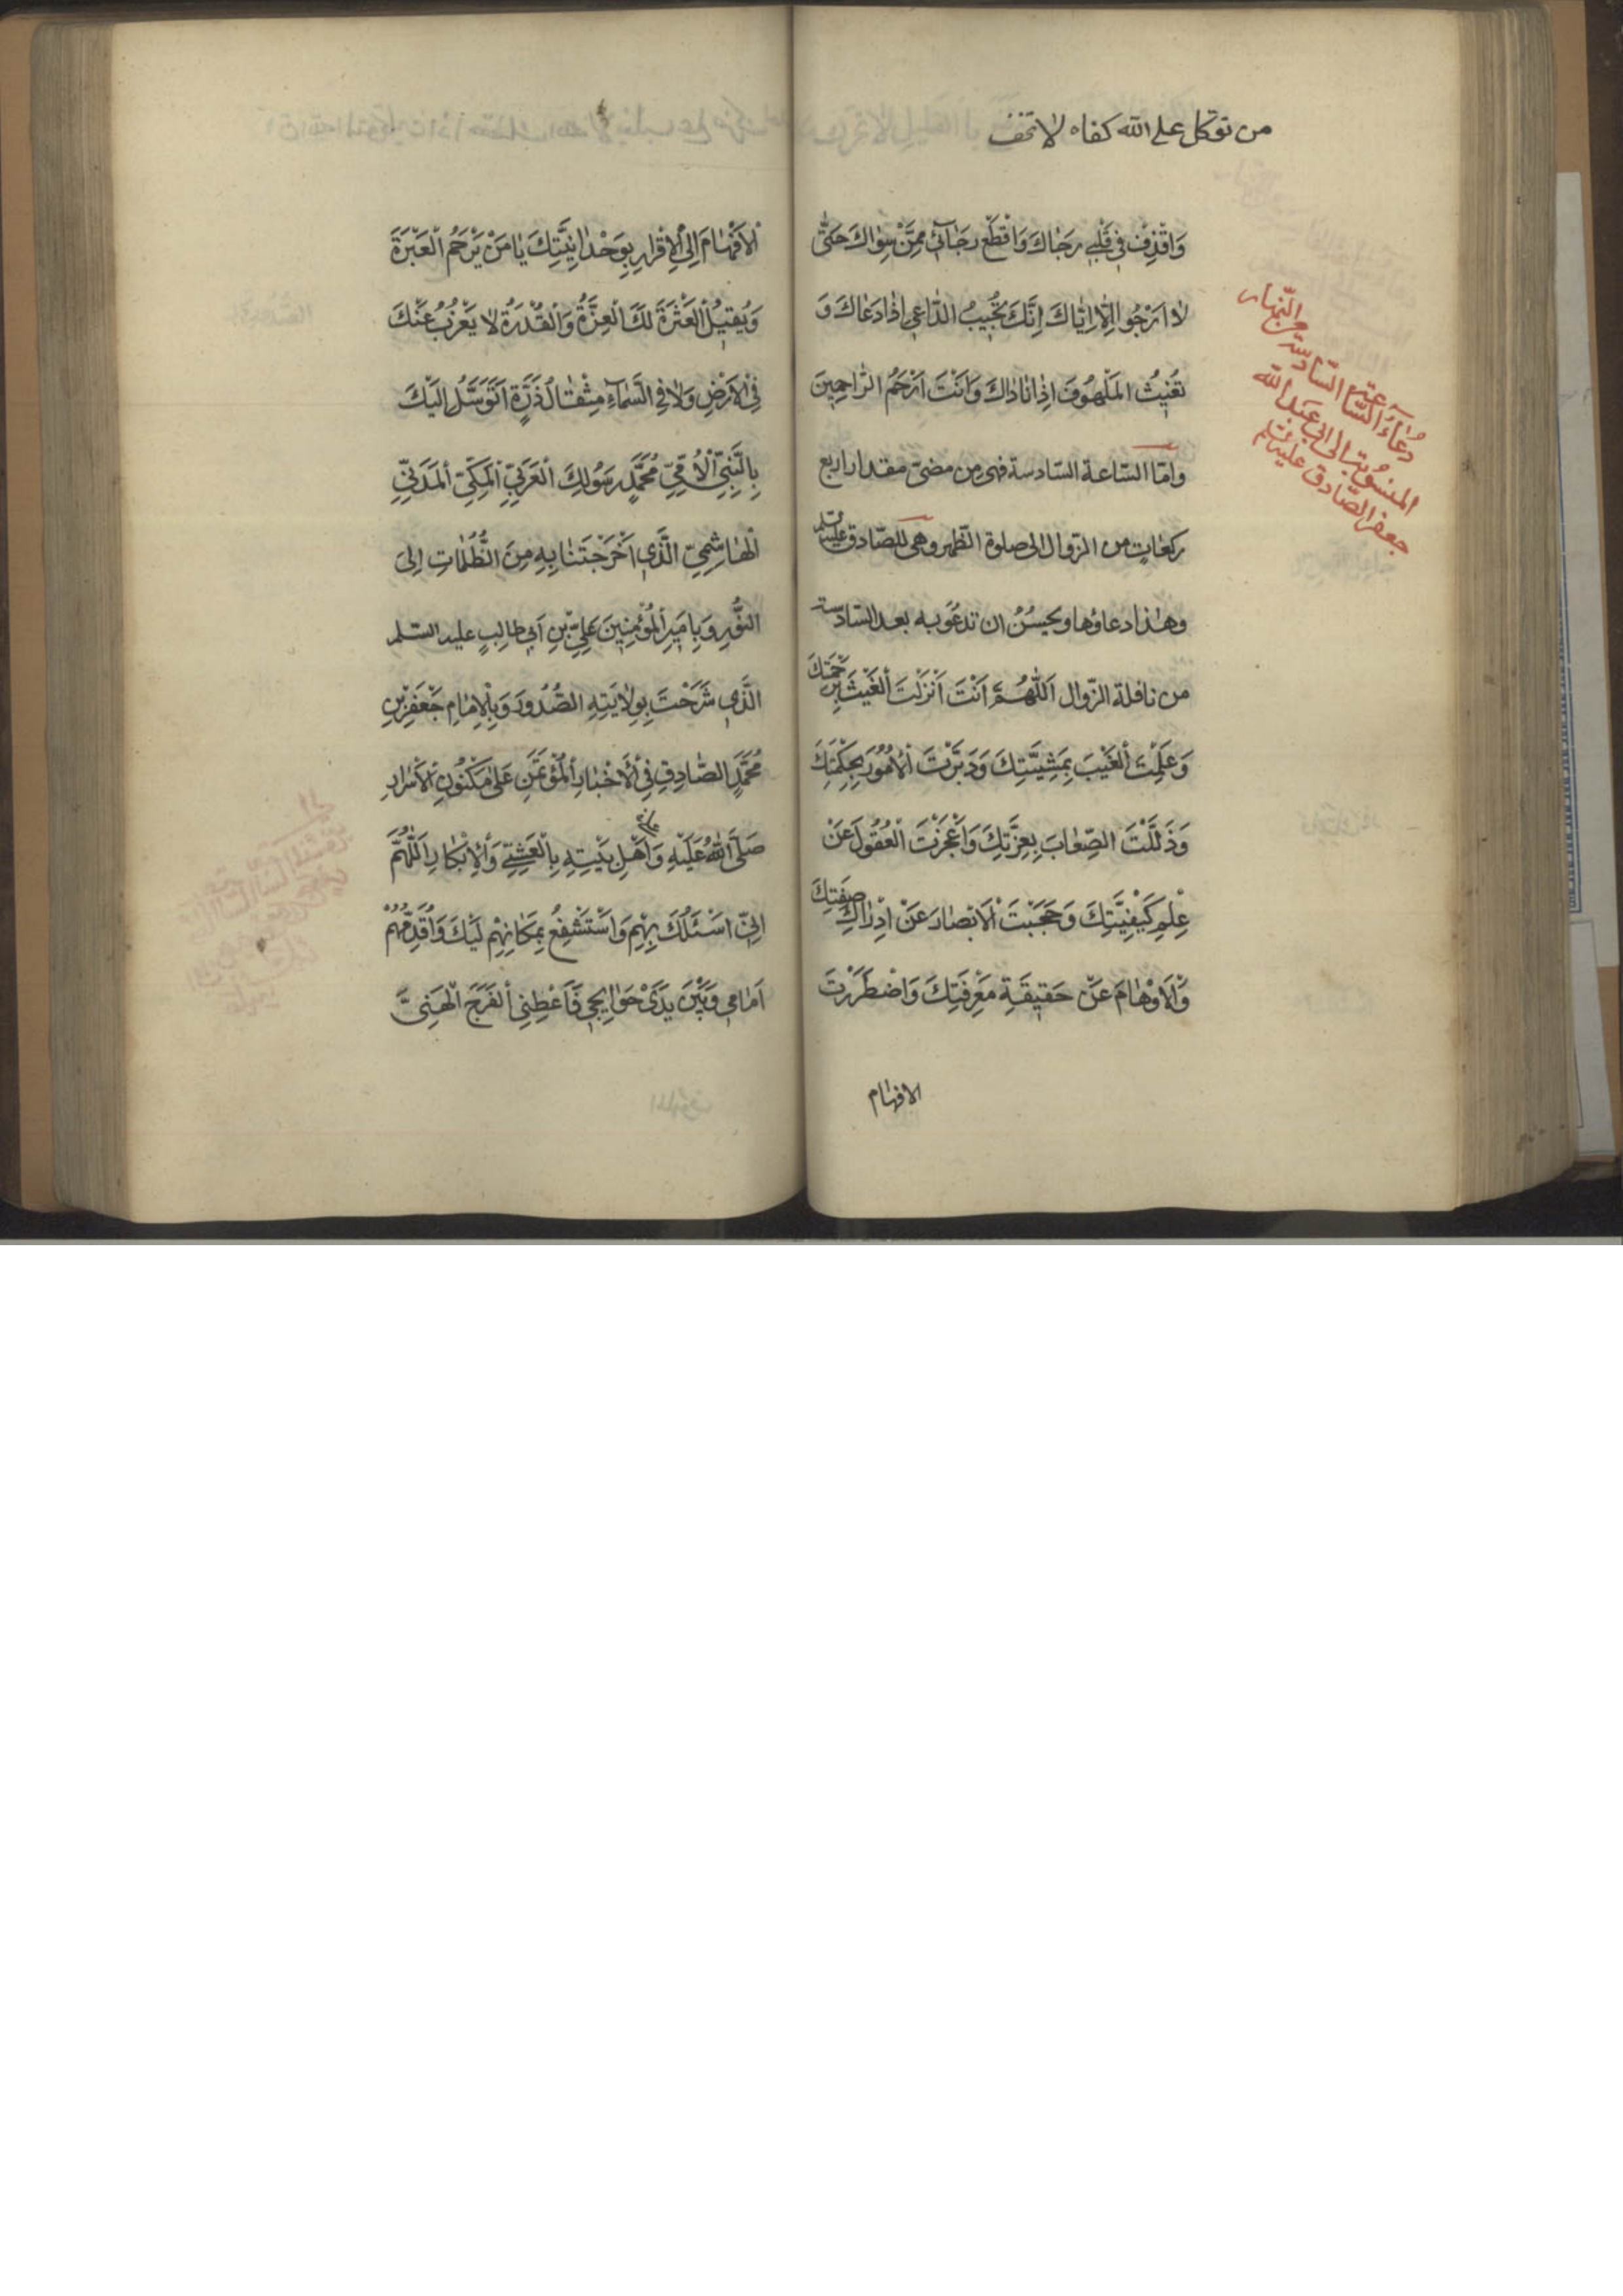 من توكل على الله كفاه لا تخف
وَاقْذِفْ فِي قَلْبِي رَجَاكَ وَاقْطَعْ رَجَائِي مِمَّنْ سِوَاكَ حَتّٰى
لا اَرْجُو اِلّا اِيّاكَ اِنَّكَ تُجِيبُ الدّاعِيَ اِذَا دَعَاكَ وَ
تُغِيثُ الْمَلْهُوفَ اِذَا نَادَاكَ وَاَنْتَ اَرْحَمُ الرّاحِمِينَ
وامّا السّاعة السّادسة فهى من مضىّ مقدار اربع
ركعاتٍ من الزّوال الى صلوة الظّهر وهى للصّادق عليه السلم
وهٰذا دعاؤها ويحسُنُ ان تدعُوَ به بعد السّادسة
من نافلة الزّوال اَللّٰهُمَّ اَنْتَ اَنْزَلْتَ الْغَيْثَ بِرَحْمَتِكَ
وَعَلِمْتَ الْغَيْبَ بِمَشِيَّتِكَ وَدَبَّرْتَ الْاُمُورَ بِحِكْمَتِكَ
وَذَلَّلْتَ الصِّعَابَ بِعِزَّتِكَ وَاَعْجَزْتَ الْعُقُولَ عَنْ
عِلْمِ كَيْفِيَّتِكَ وَحَجَبْتَ الْاَبْصَارَ عَنْ اِدْرَاكِ صِفَتِكَ
وَالْاَوْهَامَ عَنْ حَقِيقَةِ مَعْرِفَتِكَ وَاضْطَرَرْتَ
الافهام
دُعَآءُ السَّاعة السّادسة من النّهار
المنسُوبة الى ابى عبد الله
جعفر الصّادق عليه السلم
الْاَفْهَامَ اِلَى الْاِقْرَارِ بِوَحْدَانِيَّتِكَ يَا مَنْ يَرْحَمُ الْعَبْرَةَ
وَيُقِيلُ الْعَثْرَةَ لَكَ الْعِزَّةُ وَالْقُدْرَةُ لا يَعْزُبُ عَنْكَ
فِي الْاَرْضِ وَلا فِي السَّمَآءِ مِثْقَالُ ذَرَّةٍ اَتَوَسَّلُ اِلَيْكَ
بِالنَّبِيِّ الْاُمِّيِّ مُحَمَّدٍ رَسُولِكَ الْعَرَبِيِّ الْمَكِّيِّ الْمَدَنِيِّ
الْهَاشِمِيِّ الَّذِي اَخْرَجْتَنَا بِهِ مِنَ الظُّلُمَاتِ اِلَى
النُّورِ وَبِاَمِيرِ الْمُؤْمِنِينَ عَلِيِّ بْنِ اَبِي طَالِبٍ عليه السّلم
الَّذِي شَرَحْتَ بِوِلايَتِهِ الصُّدُورَ وَبِالْاِمَامِ جَعْفَرِ بْنِ
مُحَمَّدٍ الصّادِقِ فِي الْاَخْبَارِ الْمُؤْتَمَنِ عَلٰى مَكْنُونِ الْاَسْرَارِ
صَلَّى اللهُ عَلَيْهِ وَاَهْلِ بَيْتِهِ بِالْعَشِيِّ وَالْاِبْكَارِ اَللّٰهُمَّ
اِنِّي اَسْئَلُكَ بِهِمْ وَاَسْتَشْفِعُ بِمَكَانِهِمْ لَدَيْكَ وَاُقَدِّمُهُمْ
اَمَامِي وَبَيْنَ يَدَيْ حَوَائِجِي فَاَعْطِنِي الْفَرَجَ الْهَنِيَّ